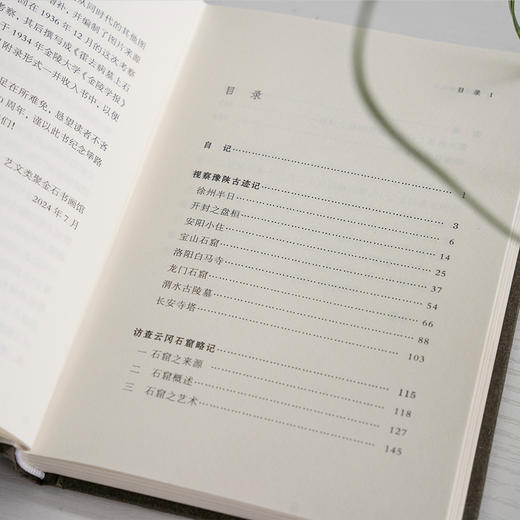 从同时代的其他图
增补，并编制了图片来源
回在 1936 年 12 月的这次考察
考察，其后撰写成《霍去病墓上石
于 1934 年金陵大学《金陵学报》
附录形式一并收入书中，以便
足在所难免，恳望读者不吝
0 周年，谨以此书纪念筚路
们！
艺文类聚金石书画馆
2024 年 7 月
目 录 I
目 录
自 记 1
视察豫陕古迹记 3
徐州半日 6
开封之盘桓 14
安阳小住 25
宝山石窟 37
洛阳白马寺 54
龙门石窟 66
渭水古陵墓 88
长安寺塔 103
访查云冈石窟略记 115
一 石窟之来源 118
二 石窟概述 127
三 石窟之艺术 145